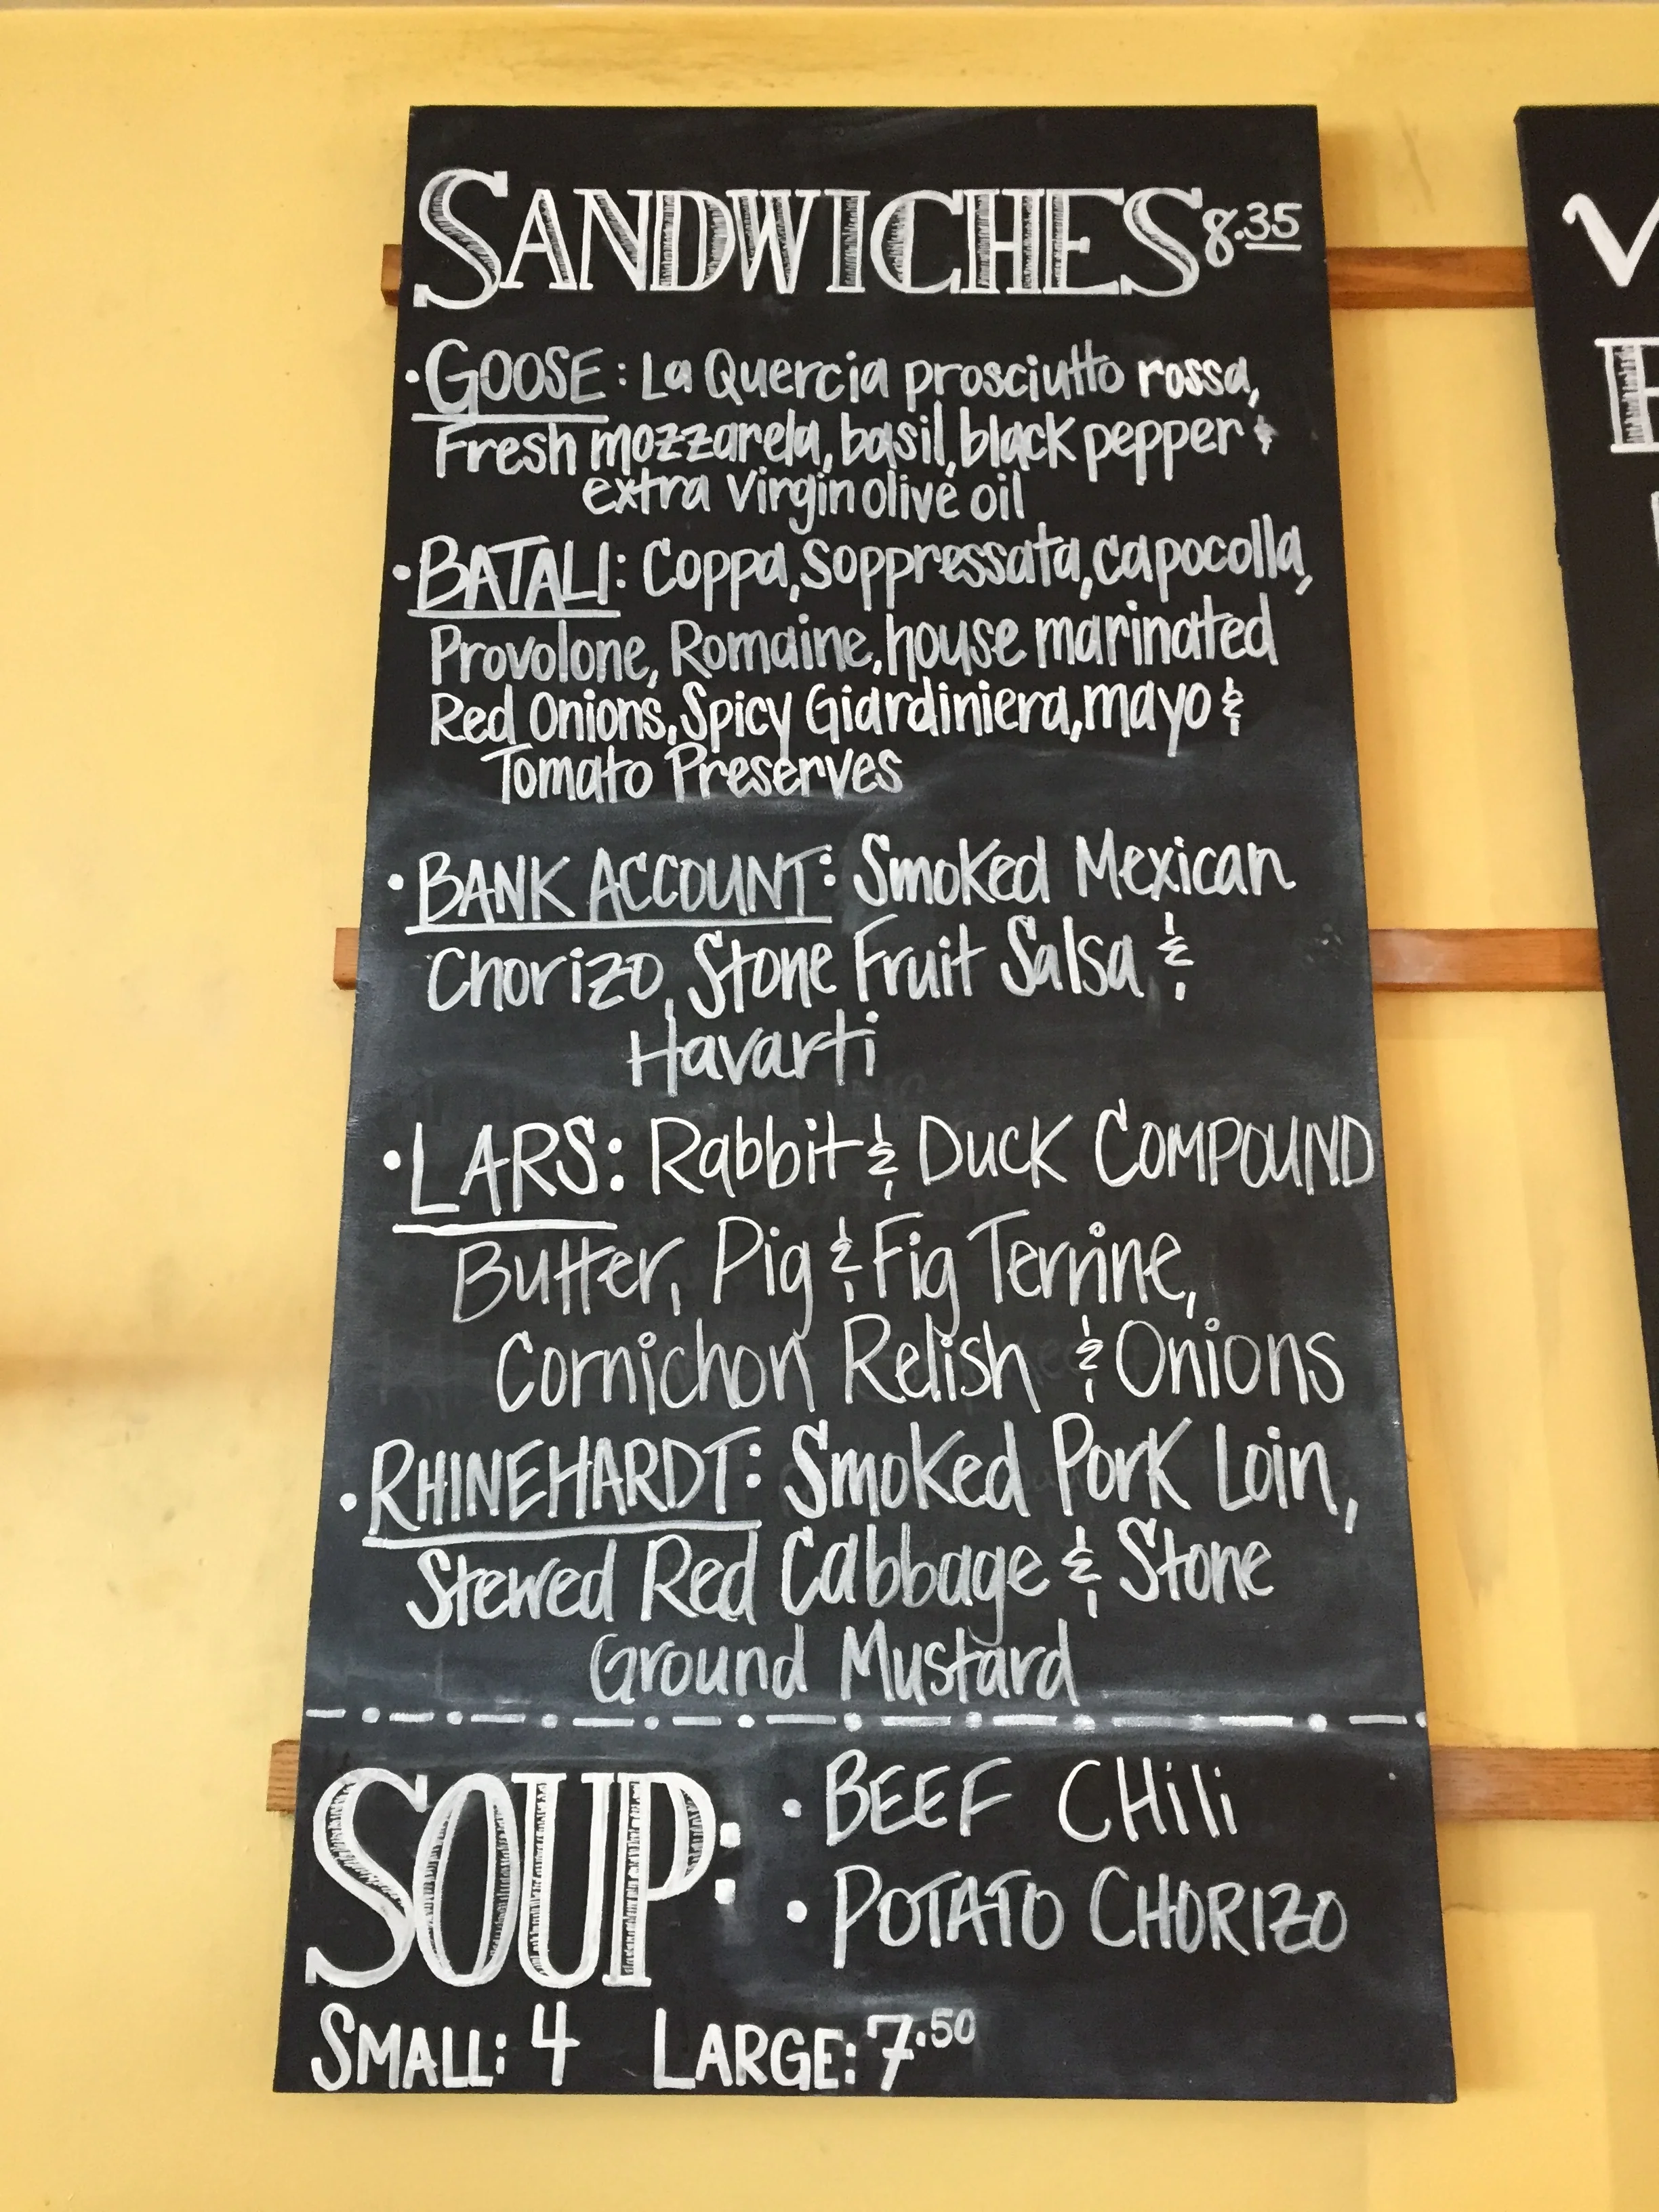 SANDWICHES 8.35
• GOOSE: La Quercia prosciutto rossa,
Fresh mozzarela, basil, black pepper &
extra Virgin olive oil
• BATALI: Coppa, Soppressata, capocolla,
Provolone, Romaine, house marinated
Red Onions, Spicy Giardiniera, mayo &
Tomato Preserves
• BANK ACCOUNT: Smoked Mexican
Chorizo, Stone Fruit Salsa &
Havarti
• LARS: Rabbit & Duck COMPOUND
Butter, Pig & Fig Terrine,
Cornichon Relish & Onions
• RHINEHARDT: Smoked Pork Loin,
Stewed Red Cabbage & Stone
Ground Mustard
SOUP: • BEEF CHili
• POTATO CHORIZO
SMALL: 4 LARGE: 7.50